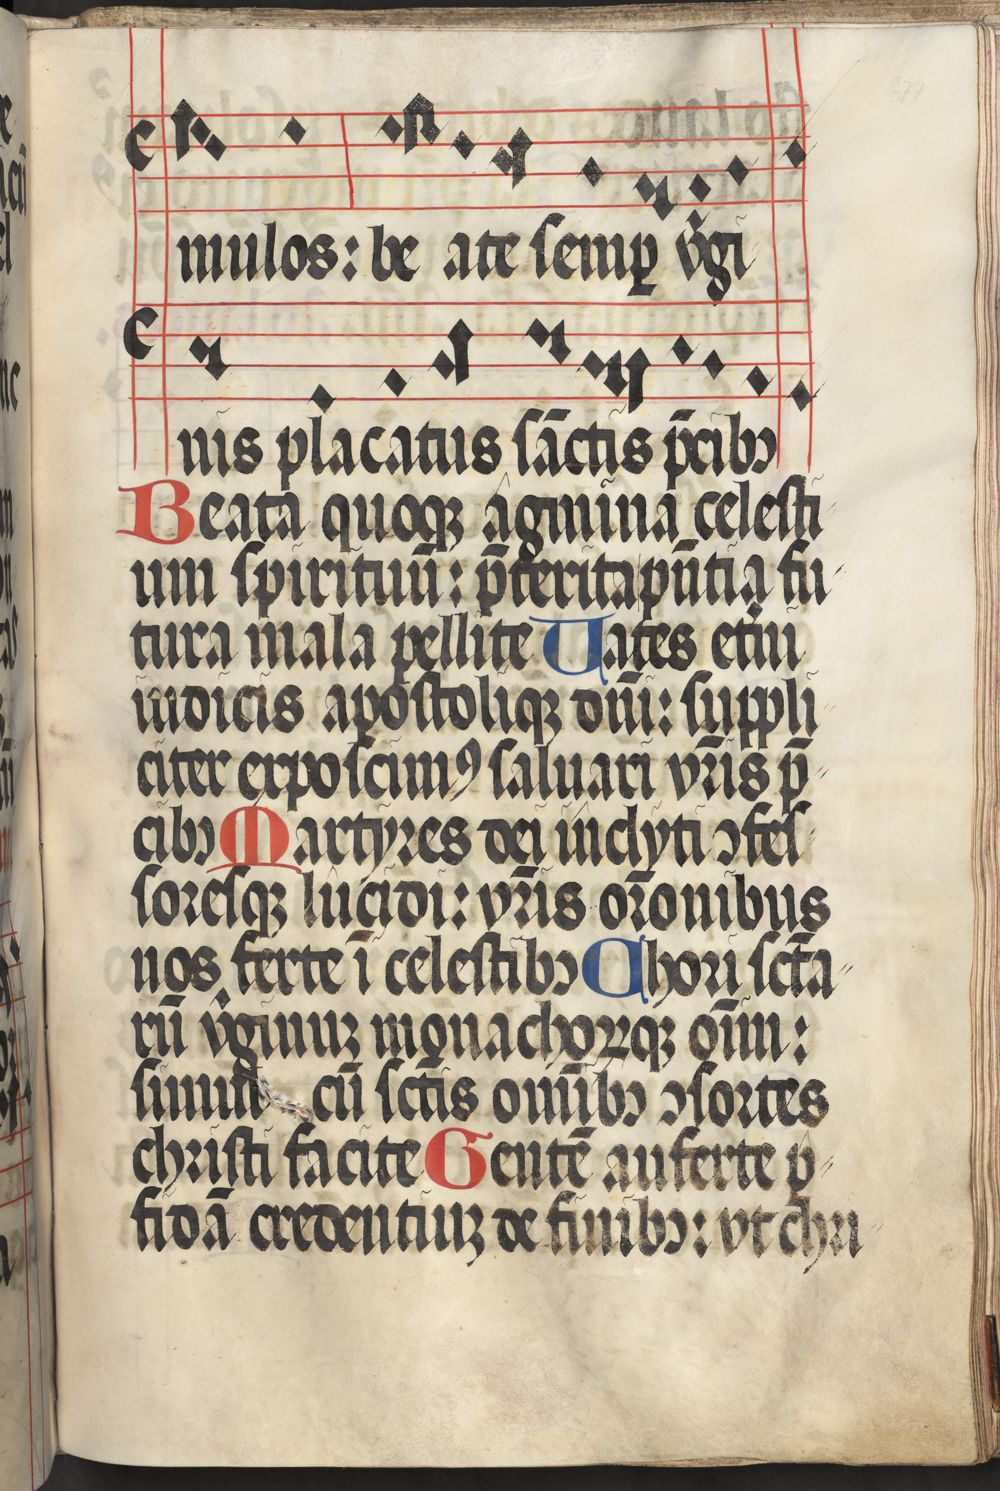 mulos: be ate semꝑ v̾gi
nis placatus sāctis p̄cibꝫ
Beata quoqꝫ agmina celesti
um spirituū: p̄terita pn̄tia fu
tura mala pellite Uates etn̄i
iudicis apostoliqꝫ dn̄i: suppli
citer exposcimꝰ saluari vr̄is p̄
cibꝫ Martyres dei inclyti ↄfes
soresqꝫ lucidi: vr̄is or̄onibus
nos ferte ī celestibꝫ Chori sctā
rū v̾ginuꝫ monachoꝝqꝫ oīm:
simul cū sctīs omībꝫ ↄsortes
christi facite Gentē auferte ꝑ
fidā credentiuꝫ de finibꝫ: vt chri